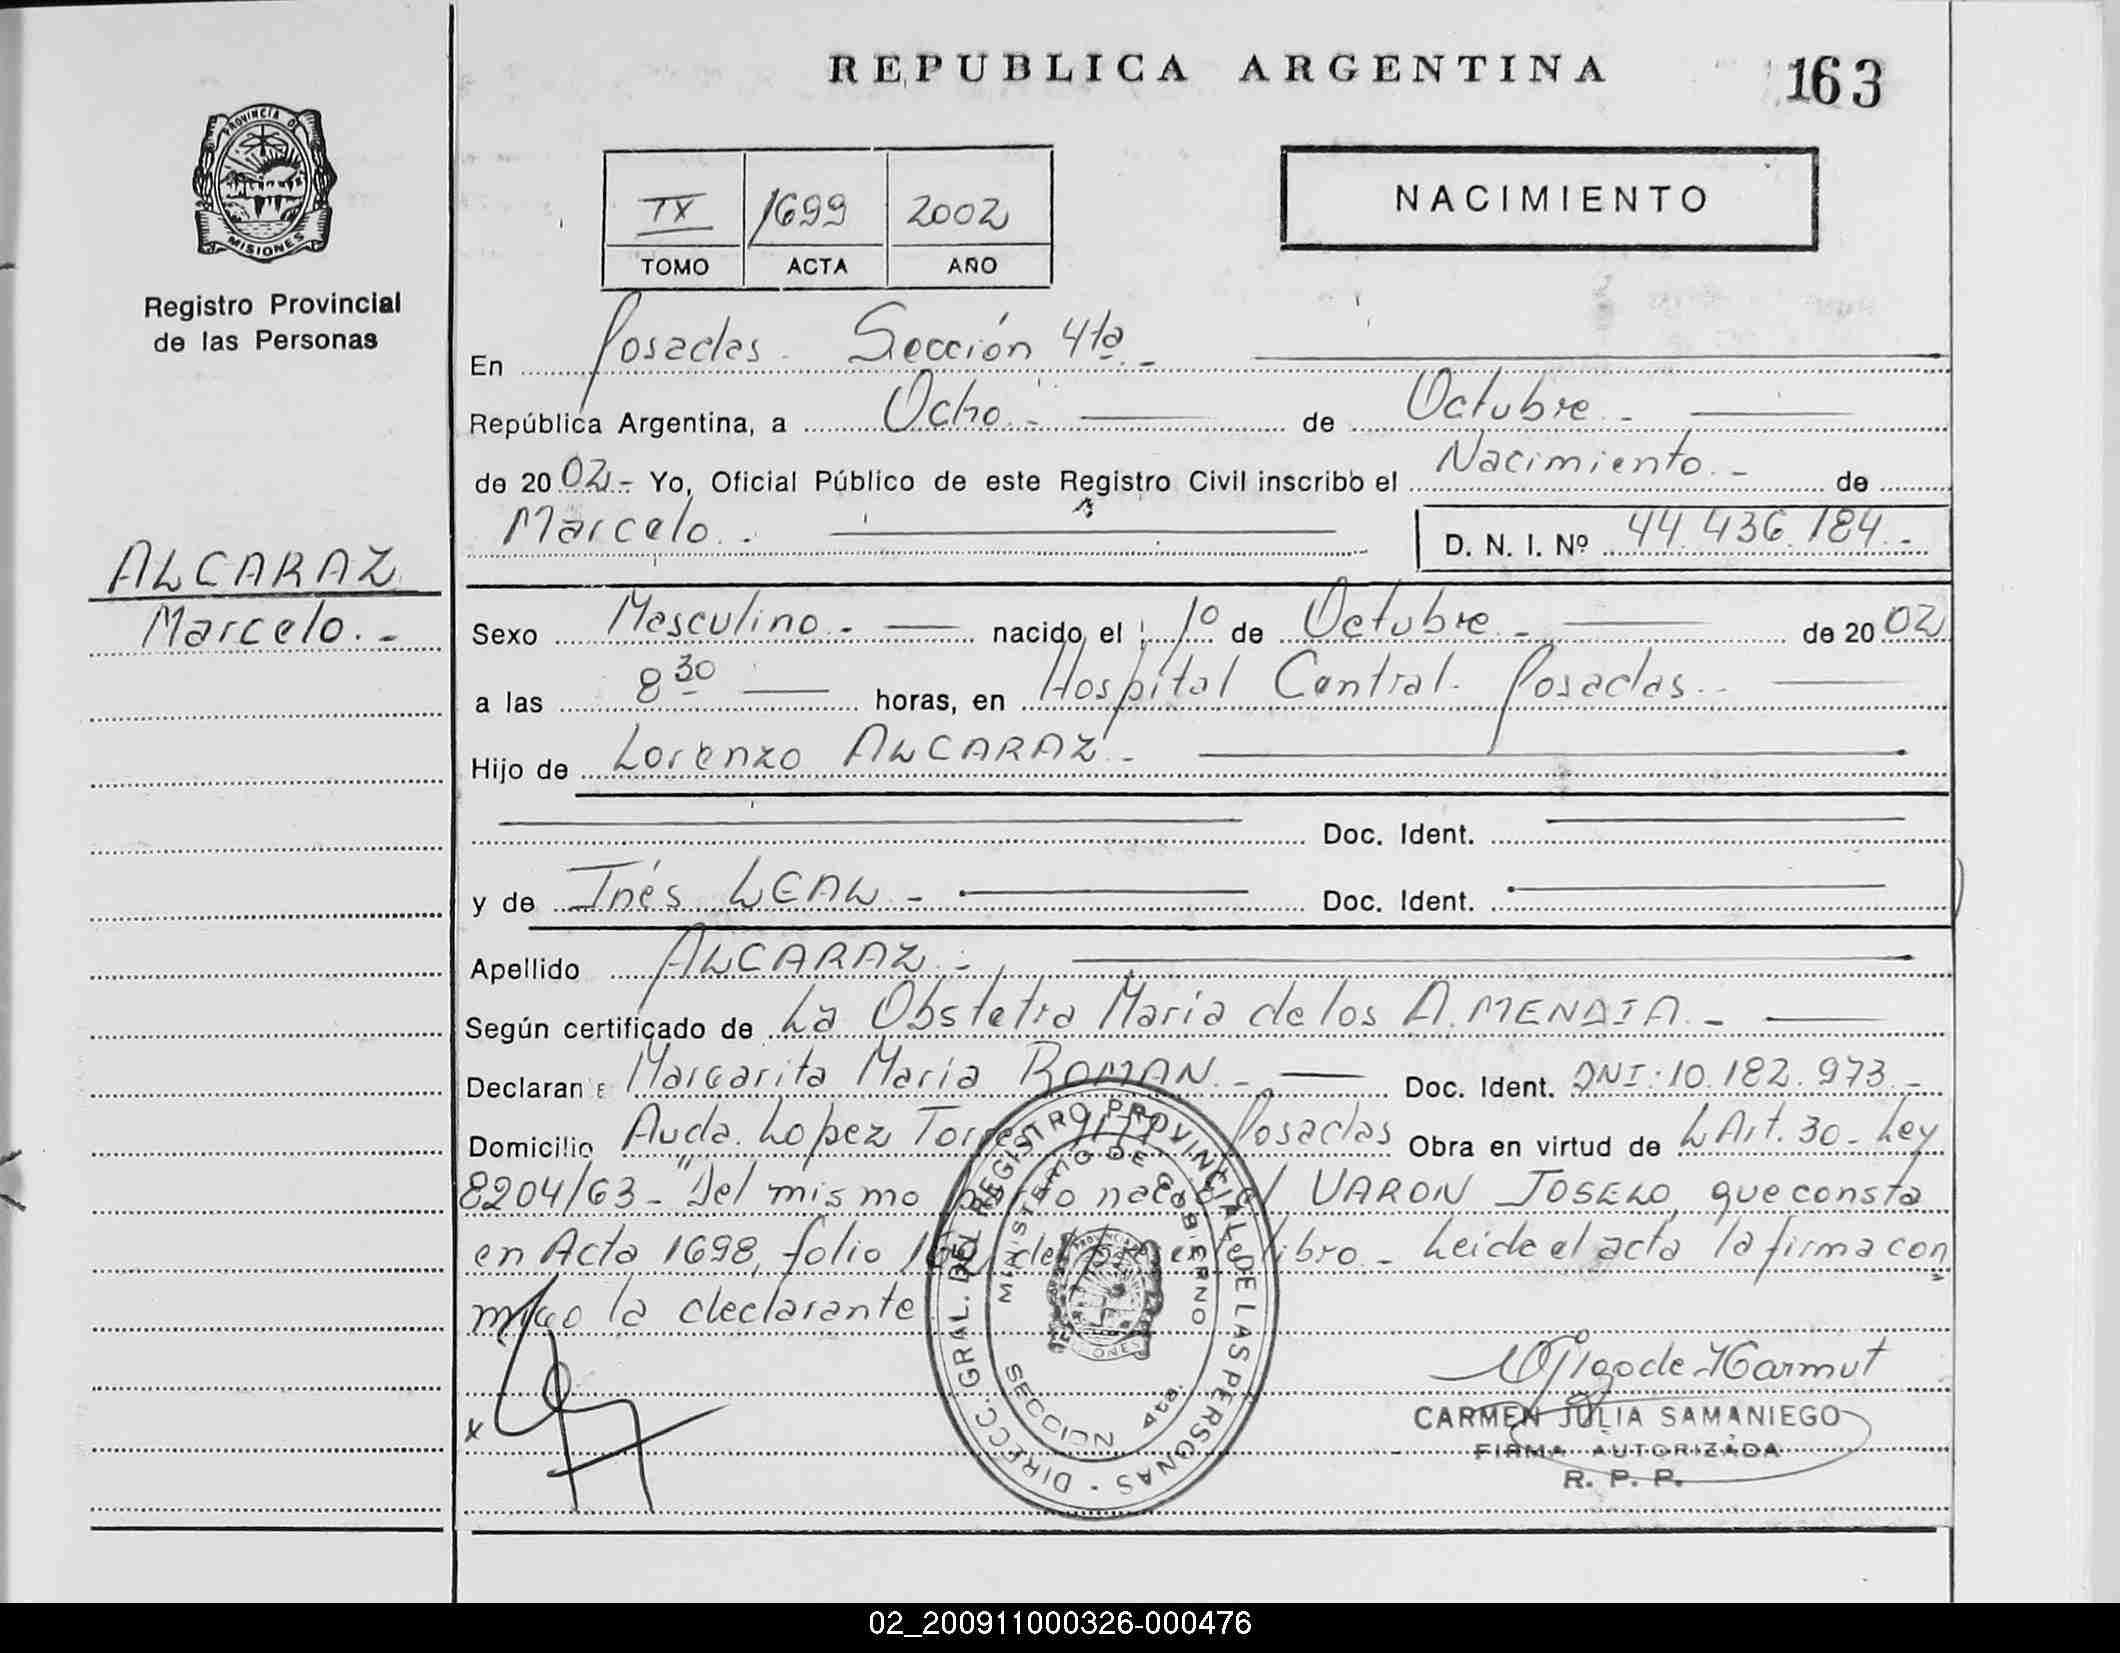 REPUBLICA ARGENTINA
163
PROVINCIA DE
MISIONES
Registro Provincial
de las Personas
IX 1699 2002
TOMO ACTA AÑO
NACIMIENTO
En Posadas - Sección 4ta.-
República Argentina, a Ocho.- de Octubre.-
de 2002.- Yo, Oficial Público de este Registro Civil inscribo el Nacimiento.- de
Marcelo.- D. N. I. Nº 44.436.184.-
ALCARAZ
Marcelo.-
Sexo Masculino.- nacido el 1º de Octubre.- de 2002
a las 8 30 horas, en Hospital Central. Posadas.-
Hijo de Lorenzo ALCARAZ.-
Doc. Ident.
y de Inés LEAL.- Doc. Ident.
Apellido ALCARAZ.-
Según certificado de La Obstetra María de los A. MENDIA.-
Declarante Margarita María ROMAN.- Doc. Ident. DNI: 10.182.973.-
Domicilio Avda. Lopez Torres Posadas Obra en virtud de L Art. 30- Ley
8204/63- "Del mismo parto nació el VARON JOSELO, que consta
en Acta 1698, folio de este libro.- Leida el acta la firma con
migo la declarante
DIRECC. GRAL. DEL REGISTRO PROVINCIAL DE LAS PERSONAS
MINISTERIO DE GOBIERNO
SECCION 4ta.
x
CARMEN JULIA SAMANIEGO
FIRMA AUTORIZADA
R. P. P.
02_200911000326-000476